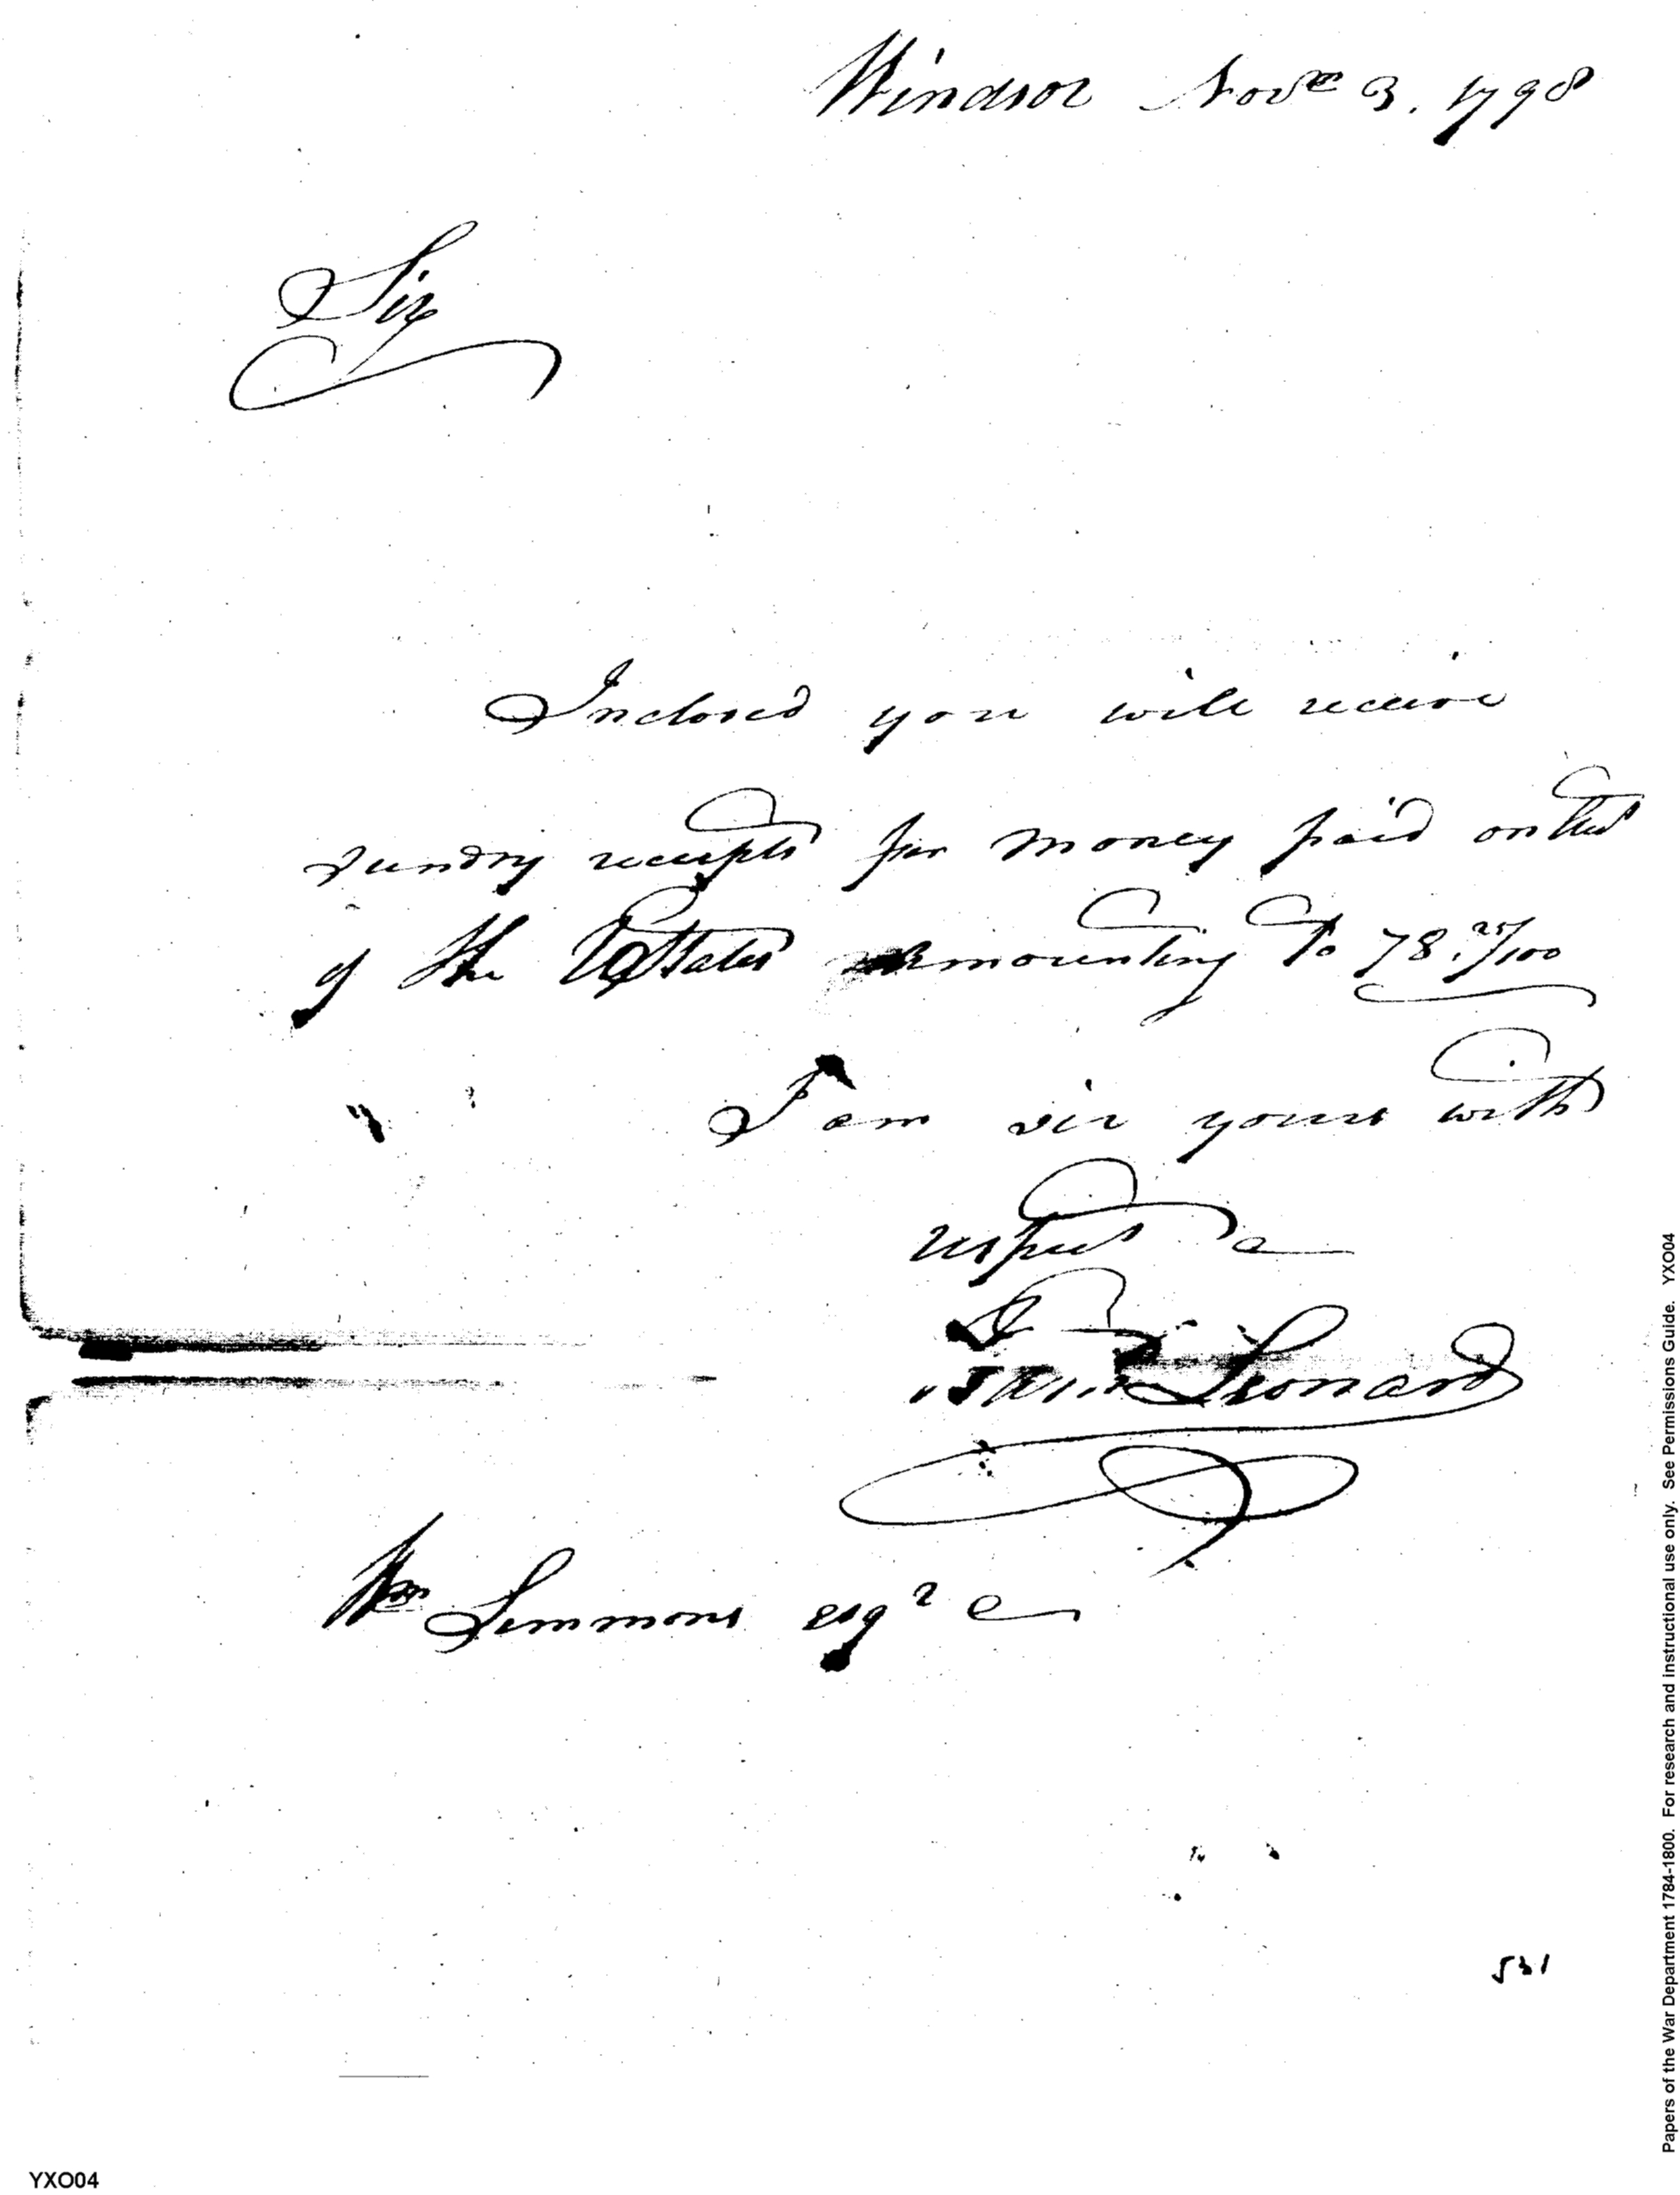 Windsor Novem 3. 1798
Sir
Inclosed you will receive
sundry receipts for money paid on
of the States amounting to 78.25/100
I am sir yours with
respect
Leonard
Wm Simmons esqr
531
YXO04
Papers of the War Department 1784-1800. For research and instructional use only. See Permissions Guide. YXO04